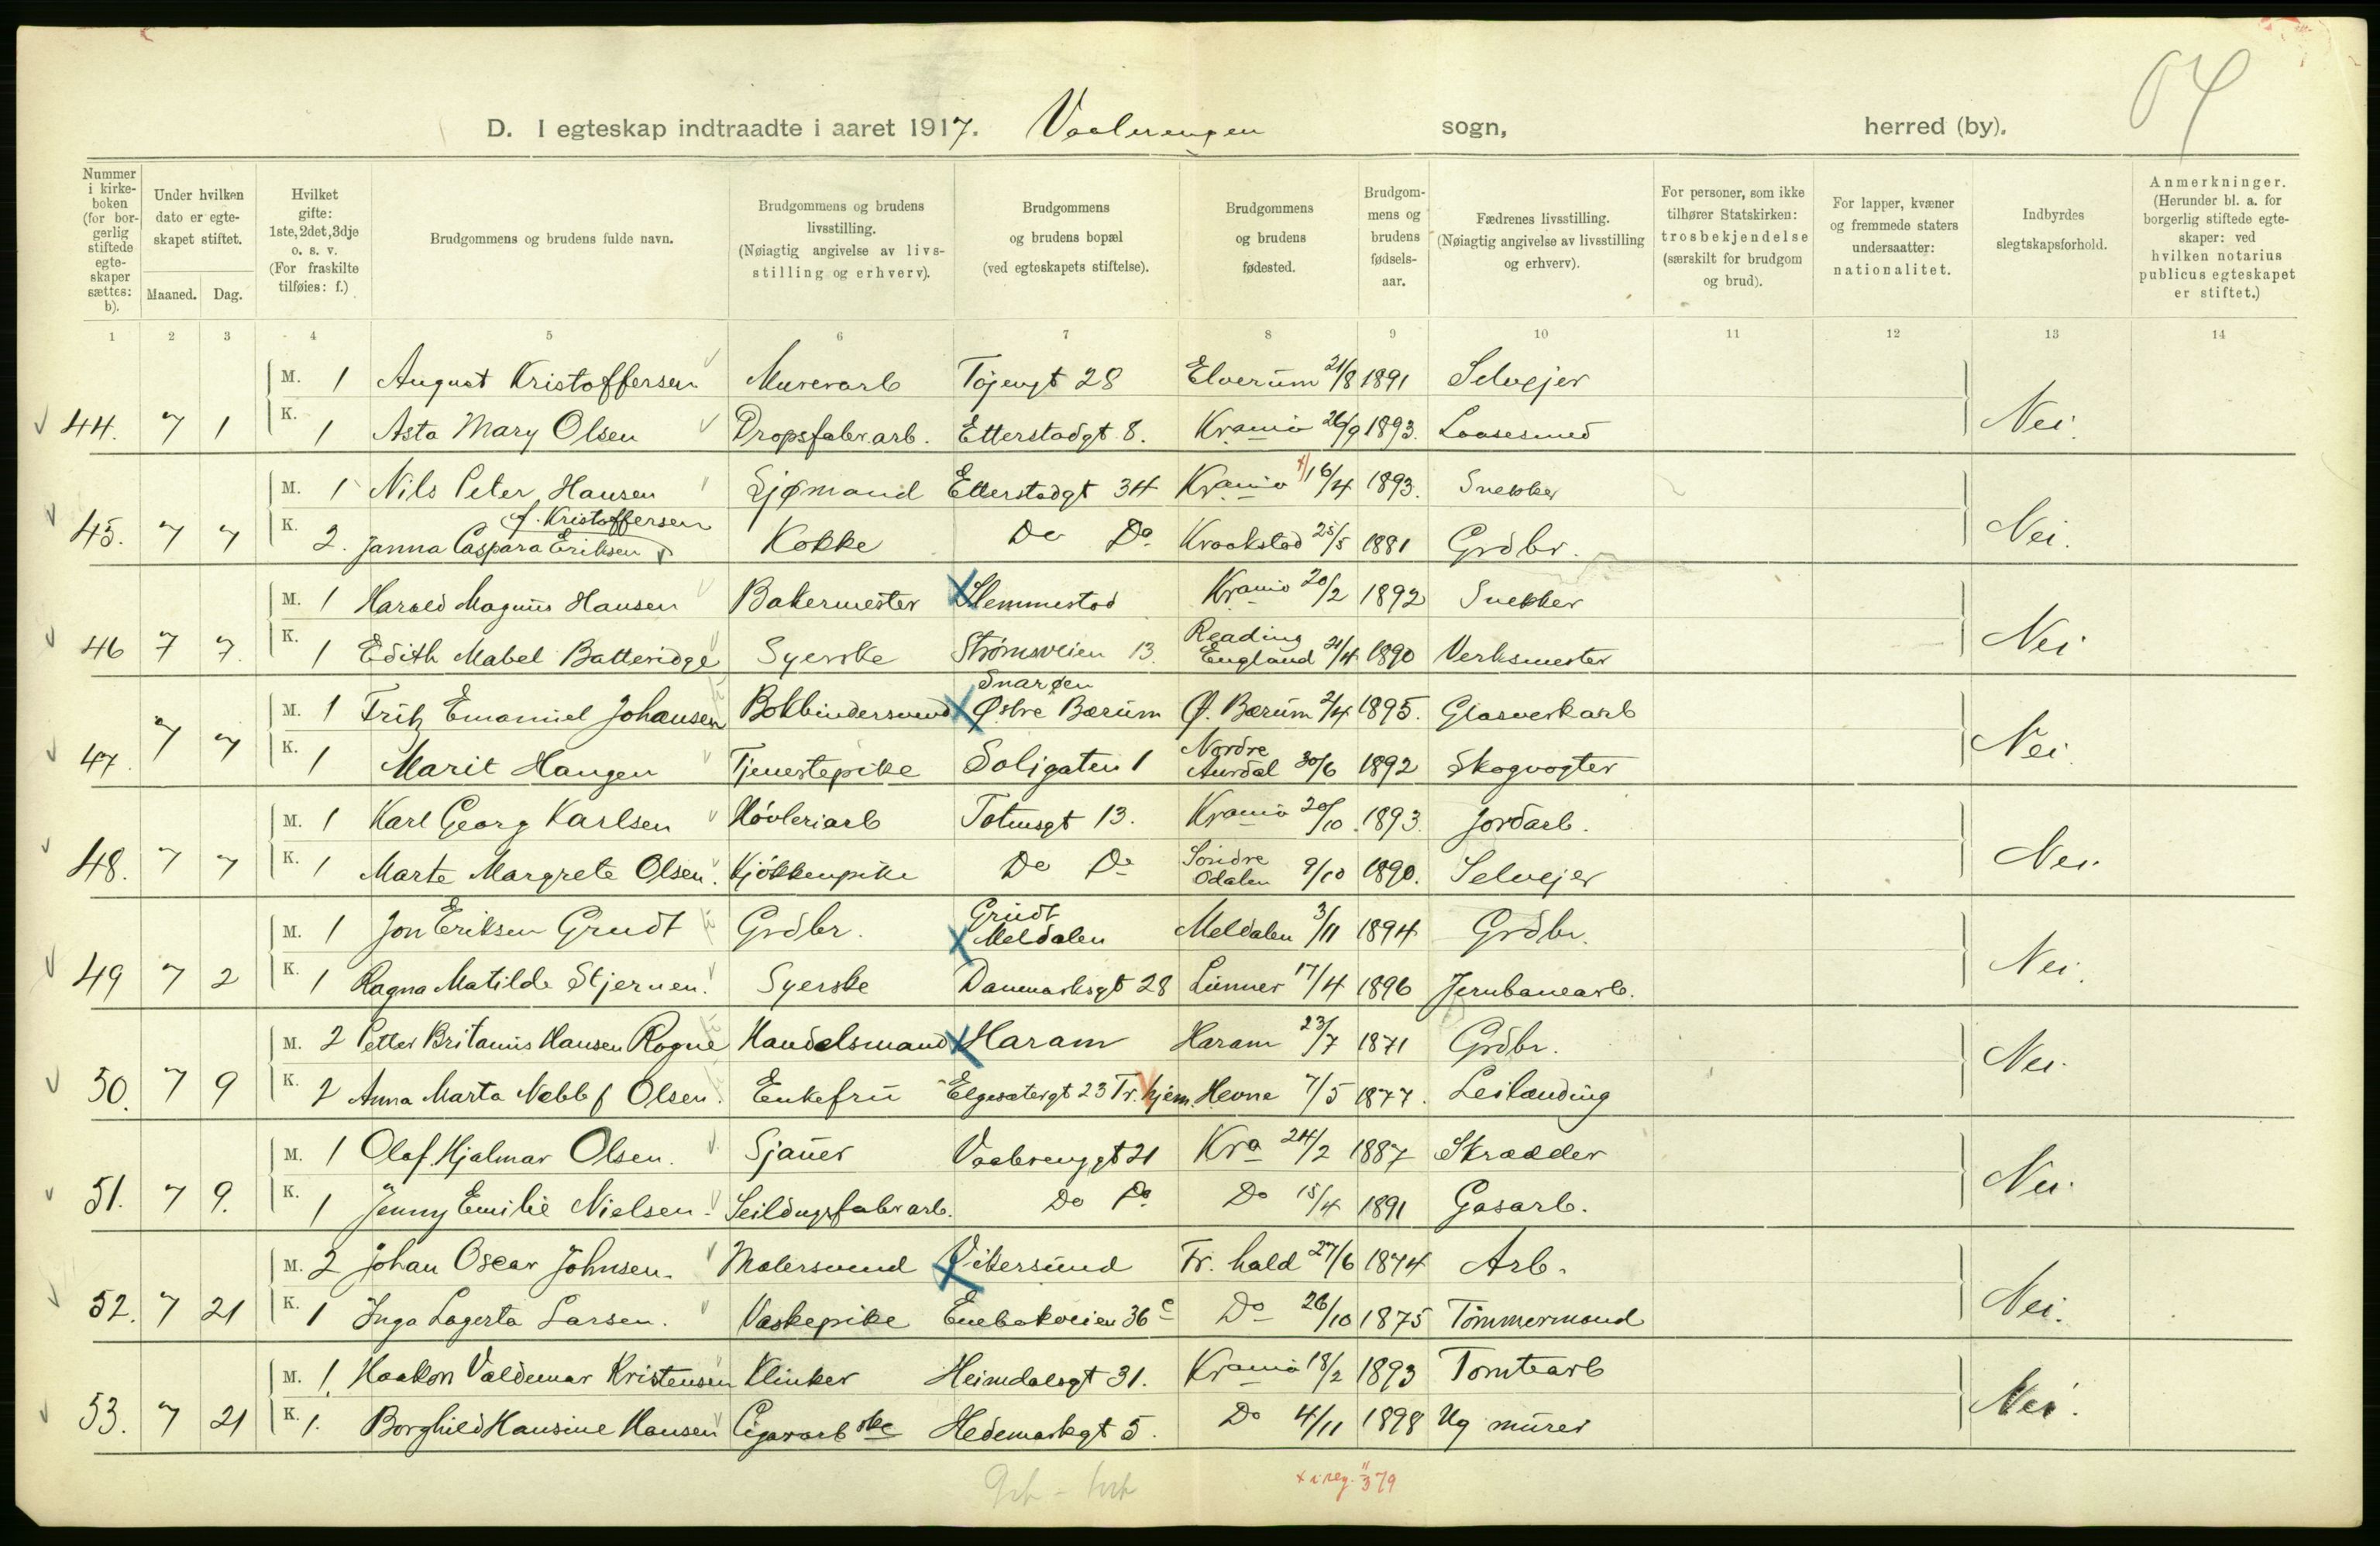 64
D. I egteskap indtraadte i aaret 1917. Vaalerengen sogn, herred (by).
Nummer i kirkeboken (for borgerlig stiftede egteskaper sættes: b).
Under hvilken dato er egteskapet stiftet.
Maaned. Dag.
Hvilket gifte: 1ste, 2det, 3dje o. s. v. (For fraskilte tilføies: f.)
Brudgommens og brudens fulde navn.
Brudgommens og brudens livsstilling. (Nøiagtig angivelse av livsstilling og erhverv).
Brudgommens og brudens bopæl (ved egteskapets stiftelse).
Brudgommens og brudens fødested.
Brudgommens og brudens fødselsaar.
Fædrenes livsstilling. (Nøiagtig angivelse av livsstilling og erhverv).
For personer, som ikke tilhører Statskirken: trosbekjendelse (særskilt for brudgom og brud).
For lapper, kvæner og fremmede staters undersaatter: nationalitet.
Indbyrdes slegtskapsforhold.
Anmerkninger. (Herunder bl. a. for borgerlig stiftede egteskaper: ved hvilken notarius publicus egteskapet er stiftet.)
1 2 3 4 5 6 7 8 9 10 11 12 13 14
M. 1 August Kristoffersen Murerarb Töjengt 28 Elverum 21/8 1891 Selvejer
44. 7 1 K. 1 Asta Mary Olsen Dropsfabr.arb. Etterstadgt 8. Krania 26/9 1893. Laasesmed Nei.
M. 1 Nils Peter Hansen Sjømand Etterstadgt 34 Krania 16/4 1893. Snekker
f. Kristoffersen
45. 7 7 K. 2. Janna Caspara Eriksen Kokke Do Do Kraakstad 25/5 1881 Grdbr. Nei.
M. 1 Harald Magnus Hansen Bakermester Slemmestad Krania 20/2 1892 Snekker
46 7 7. K. 1 Edith Mabel Batteridge Syerske Strømsveien 13. Reading England 21/4 1890 Verksmester Nei
M. 1 Fritz Emanuel Johansen Bokbindersvend Snarøen Østre Bærum Ø. Bærum 2/4 1895. Glasverkarb
47. 7 7 K. 1 Marit Haugen Tjenestepike Soligaten 1 Nordre Aurdal 30/6 1892 Skogvogter Nei
M. 1 Karl Georg Karlsen Høvleriarb Totensgt 13. Krania 20/10 1893. Jordarb.
48. 7 7 K. 1 Marte Margrete Olsen. Kjøkkenpike Do Do Söndre Odalen 9/10 1890. Selvejer Nei.
M. 1 Jon Eriksen Grudt Grdbr. Grudt Meldalen Meldalen 3/11 1894 Grdbr.
49 7 2 K. 1 Ragna Matilde Stjernen. Syerske Danmarksgt 28 Lunner 17/4 1896 Jernbanearb. Nei.
M. 2 Petter Britanus Hansen Rogne Handelsmand Haram Haram 23/7 1871 Grdbr.
50. 7 9 K. 2 Anna Marta Nebb f Olsen. Enkefru Elgesætergt 23 Tr.hjem. Hevne 7/5 1877. Leilænding Nei.
M. 1 Olaf Hjalmar Olsen. Sjauer Vaalerenggt 21 Kra 24/2 1887 Skrædder
51. 7 9. K. 1 Jenny Emilie Nielsen. Seildugsfabrarb. Do Do Do 15/4 1891 Gasarb. Nei.
M. 2 Johan Oscar Johnsen. Malersvend Vikersund Fr. hald 27/6 1874 Arb.
52. 7 21 K. 1 Inga Lagerta Larsen. Vaskepike Enebakveien 36c Do 26/10 1875 Tömmermand Nei.
M. 1. Haakon Valdemar Kristensen Klinker Heimdalsgt 31. Krania 18/2 1893 Tomtearb
53. 7 21 K. 1. Borghild Hansine Hansen Cigararbske Hedemarkgt 5. Do 4/11 1898 Ug murer Nei.
x i reg. 379